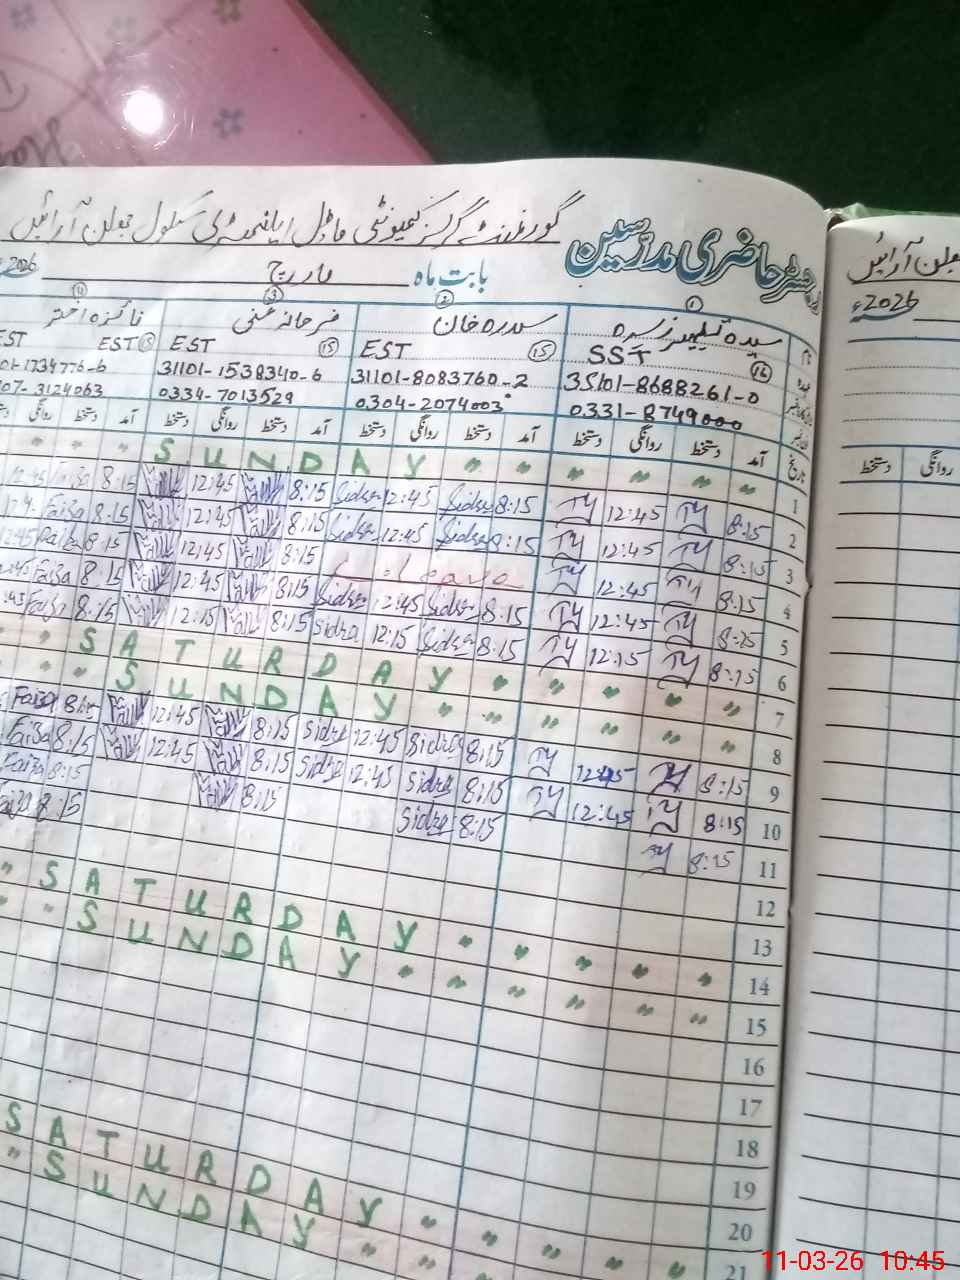 گورنمنٹ گرلز کمیونٹی ماڈل ایلیمنٹری سکول جہلن آرائیں
رجسٹر حاضری مدرسین
بابت ماہ مارچ 2026
سیدہ
سدرہ خان
فرحانہ غنی
فائزہ اختر
SST 16
EST 15
EST 15
EST 15
EST
35101-8688261-0
31101-8083760-2
31101-1538340-6
01-1734776-6
0331-8749000
0304-2074003
0334-7013529
07-3124063
تاریخ آمد دستخط روانگی دستخط آمد دستخط روانگی دستخط آمد دستخط روانگی دستخط آمد دستخط روانگی
1 SUNDAY " " " " "
2 8:15 12:45 8:15 Sidra 12:45 Sidra 8:15 12:45 8:15 Faiza 12:45
3 8:15 12:45 8:15 Sidra 12:45 Sidra 8:15 12:45 8:15 Faiza
4 8:15 12:45 Leave 8:15 12:45 8:15 Faiza 12:45
5 8:15 12:45 8:15 Sidra 12:45 Sidra 8:15 12:45 8:15 Faiza
6 8:15 12:15 8:15 Sidra 12:15 Sidra 8:15 12:15 8:15 Faiza
7 SATURDAY " " " " "
8 SUNDAY " " " " "
9 8:15 12:45 8:15 Sidra 12:45 Sidra 8:15 12:45 8:15 Faiza
10 8:15 12:45 8:15 Sidra 12:45 Sidra 8:15 12:45 8:15 Faiza
11 8:15 8:15 Sidra 8:15 8:15 Faiza
12
13
14 SATURDAY " " " " "
15 SUNDAY " " " " " "
16
17
18
19
20
21 SATURDAY " " " " "
SUNDAY " "
آرائیں
2026ء
روانگی دستخط
11-03-26 10:45